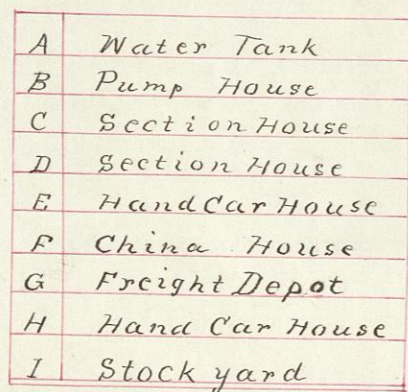 A Water Tank
B Pump House
C Section House
D Section House
E Hand Car House
F China House
G Freight Depot
H Hand Car House
I Stock yard